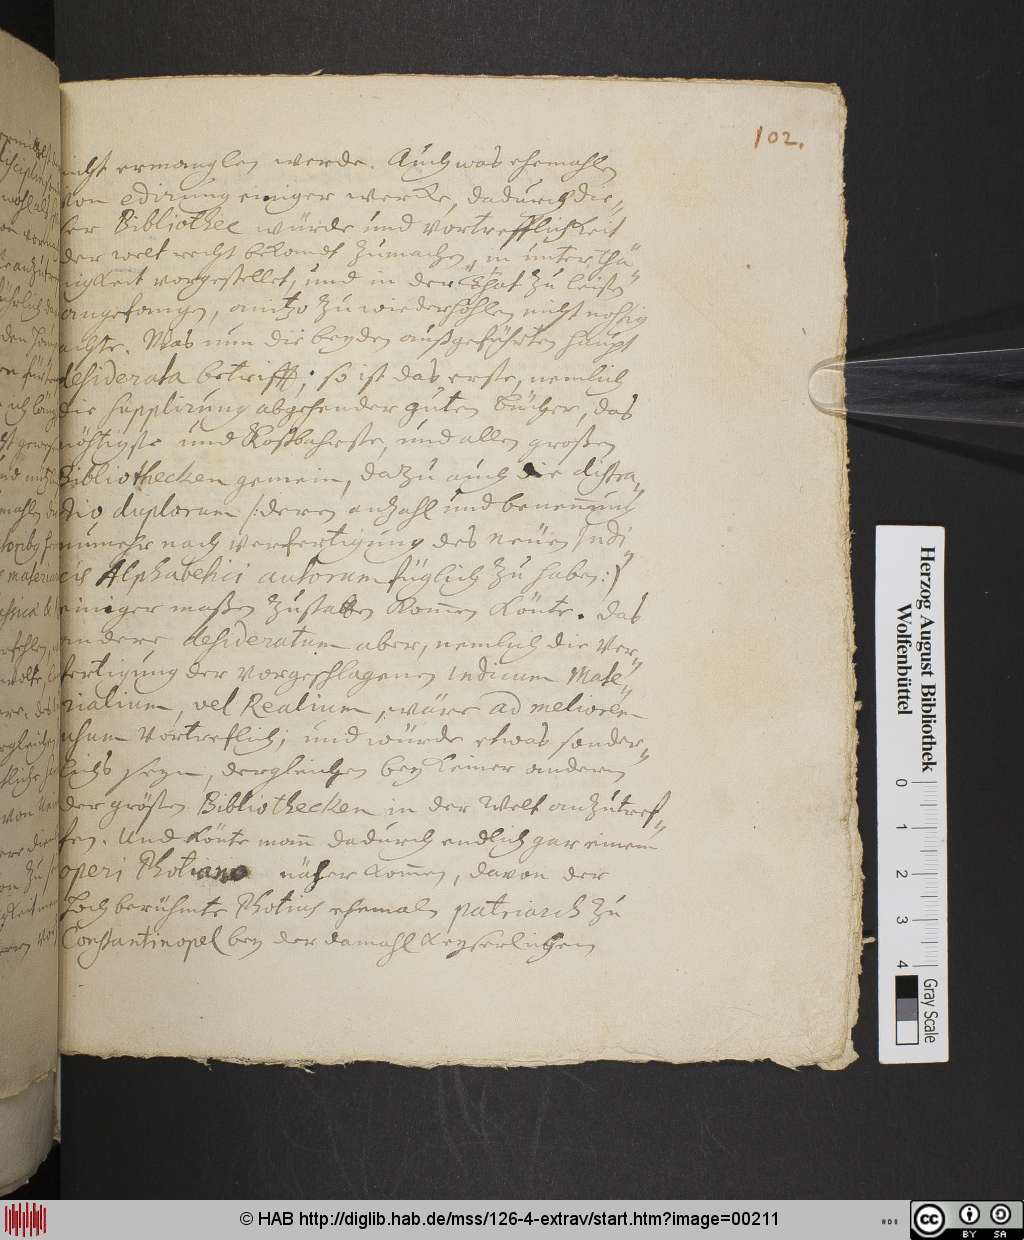 102.
nicht ermanglen werde. Auch was ehemahlen
von edirung einiger wercke, dadurch die¬
ser Bibliothec würde und vortrefflichkeit
der welt recht bekandt zumachen, in unterthä¬
nigkeit vorgestellet, und in der that zu leisten
angefangen, anitzo zu wiederhohlen nicht nohtig
achte. Was nun die beyden außgeführten haupt
desiderata betrifft; so ist das erste, nemlich
die supplirung abgehender guten bücher, das
nöhtigste und Kostbahreste, und allen großen
Bibliothecken gemein, dazu auch die distra¬
ctio duplorum /: deren anzahl und benennung
nunmehr nach verfertigung des neuen Indi¬
cis Alphabetici autorum füglich zu haben :/
einiger maßen zustatten kommen könte. das
andere desideratum aber, nemlich die ver¬
fertigung der vorgeschlagenen Indicum Mate¬
rialium, vel Realium, wäre ad meliorem
usum vortreflich; und würde etwas sonder¬
lichs seyn, dergleichen bey keiner andern
der grösten Bibliothecken in der Welt anzutref¬
fen. Und könte man dadurch endlich gar einem
operi Photiano näher kommen, davon der
Hochberühmte Photius ehemaln patriarch zu
Constantinopel bey der damahl Keyserlichen
Herzog August Bibliothek
Wolfenbüttel
0 1 2 3 4
Gray Scale
© HAB http://diglib.hab.de/mss/126-4-extrav/start.htm?image=00211
cc BY SA